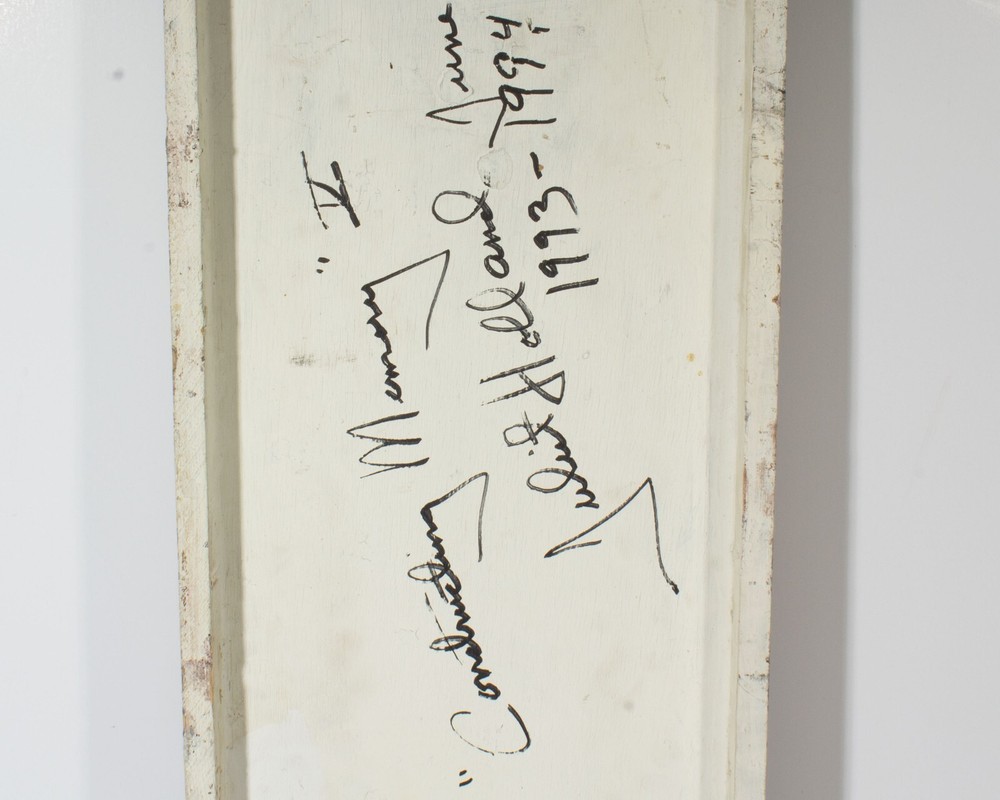 "Constructing Memory" V
Juliet Holland June
1993 - 1994